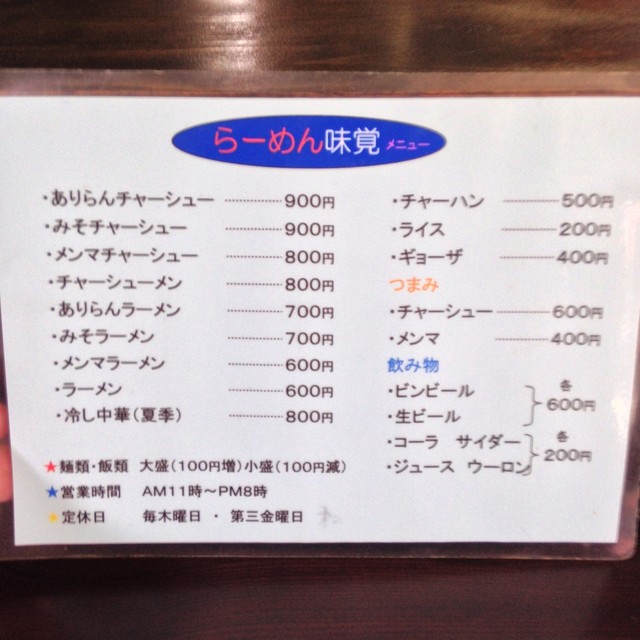 らーめん味覚 メニュー
・ありらんチャーシュー ………… 900円
・みそチャーシュー ………… 900円
・メンマチャーシュー ………… 800円
・チャーシューメン ………… 800円
・ありらんラーメン ………… 700円
・みそラーメン ………… 700円
・メンマラーメン ………… 600円
・ラーメン ………… 600円
・冷し中華(夏季) ………… 800円
★麺類・飯類 大盛(100円増)小盛(100円減)
★営業時間 AM11時〜PM8時
★定休日 毎木曜日 ・ 第三金曜日
・チャーハン ………… 500円
・ライス ………… 200円
・ギョーザ ………… 400円
つまみ
・チャーシュー ………… 600円
・メンマ ………… 400円
飲み物
・ビンビール
・生ビール
各
600円
・コーラ サイダー
・ジュース ウーロン
各
200円